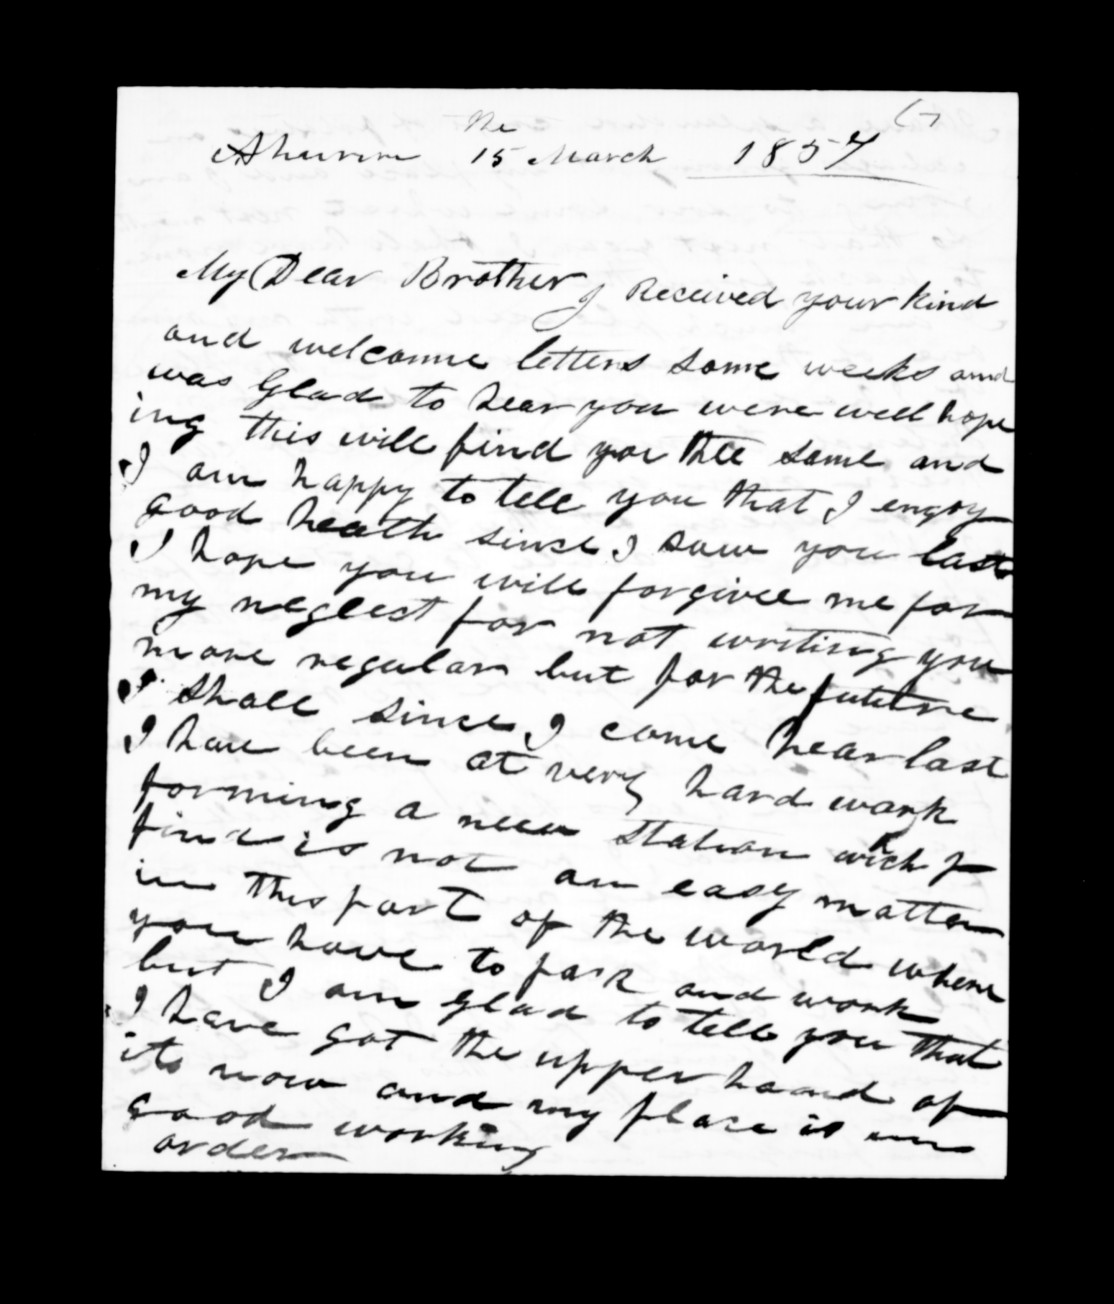 Ahuriri the 15 March 1857
My Dear Brother I Received your kind
and welcome letters some weeks and
was Glad to hear you were well hope
ing this will find you thee same and
I am happy to tell you that I engoy
Good heath since I saw you last
I hope you will forgive me for
my neglest for not writing you
more regular but for the futture
I shall since I came hear last
I have been at very hard work
forming a new station wich I
find is not an easy matter
in this part of the world where
you have to pack and work
but I am glad to tell you that
I have got the upper hand of
it now and my place is in
good working
order